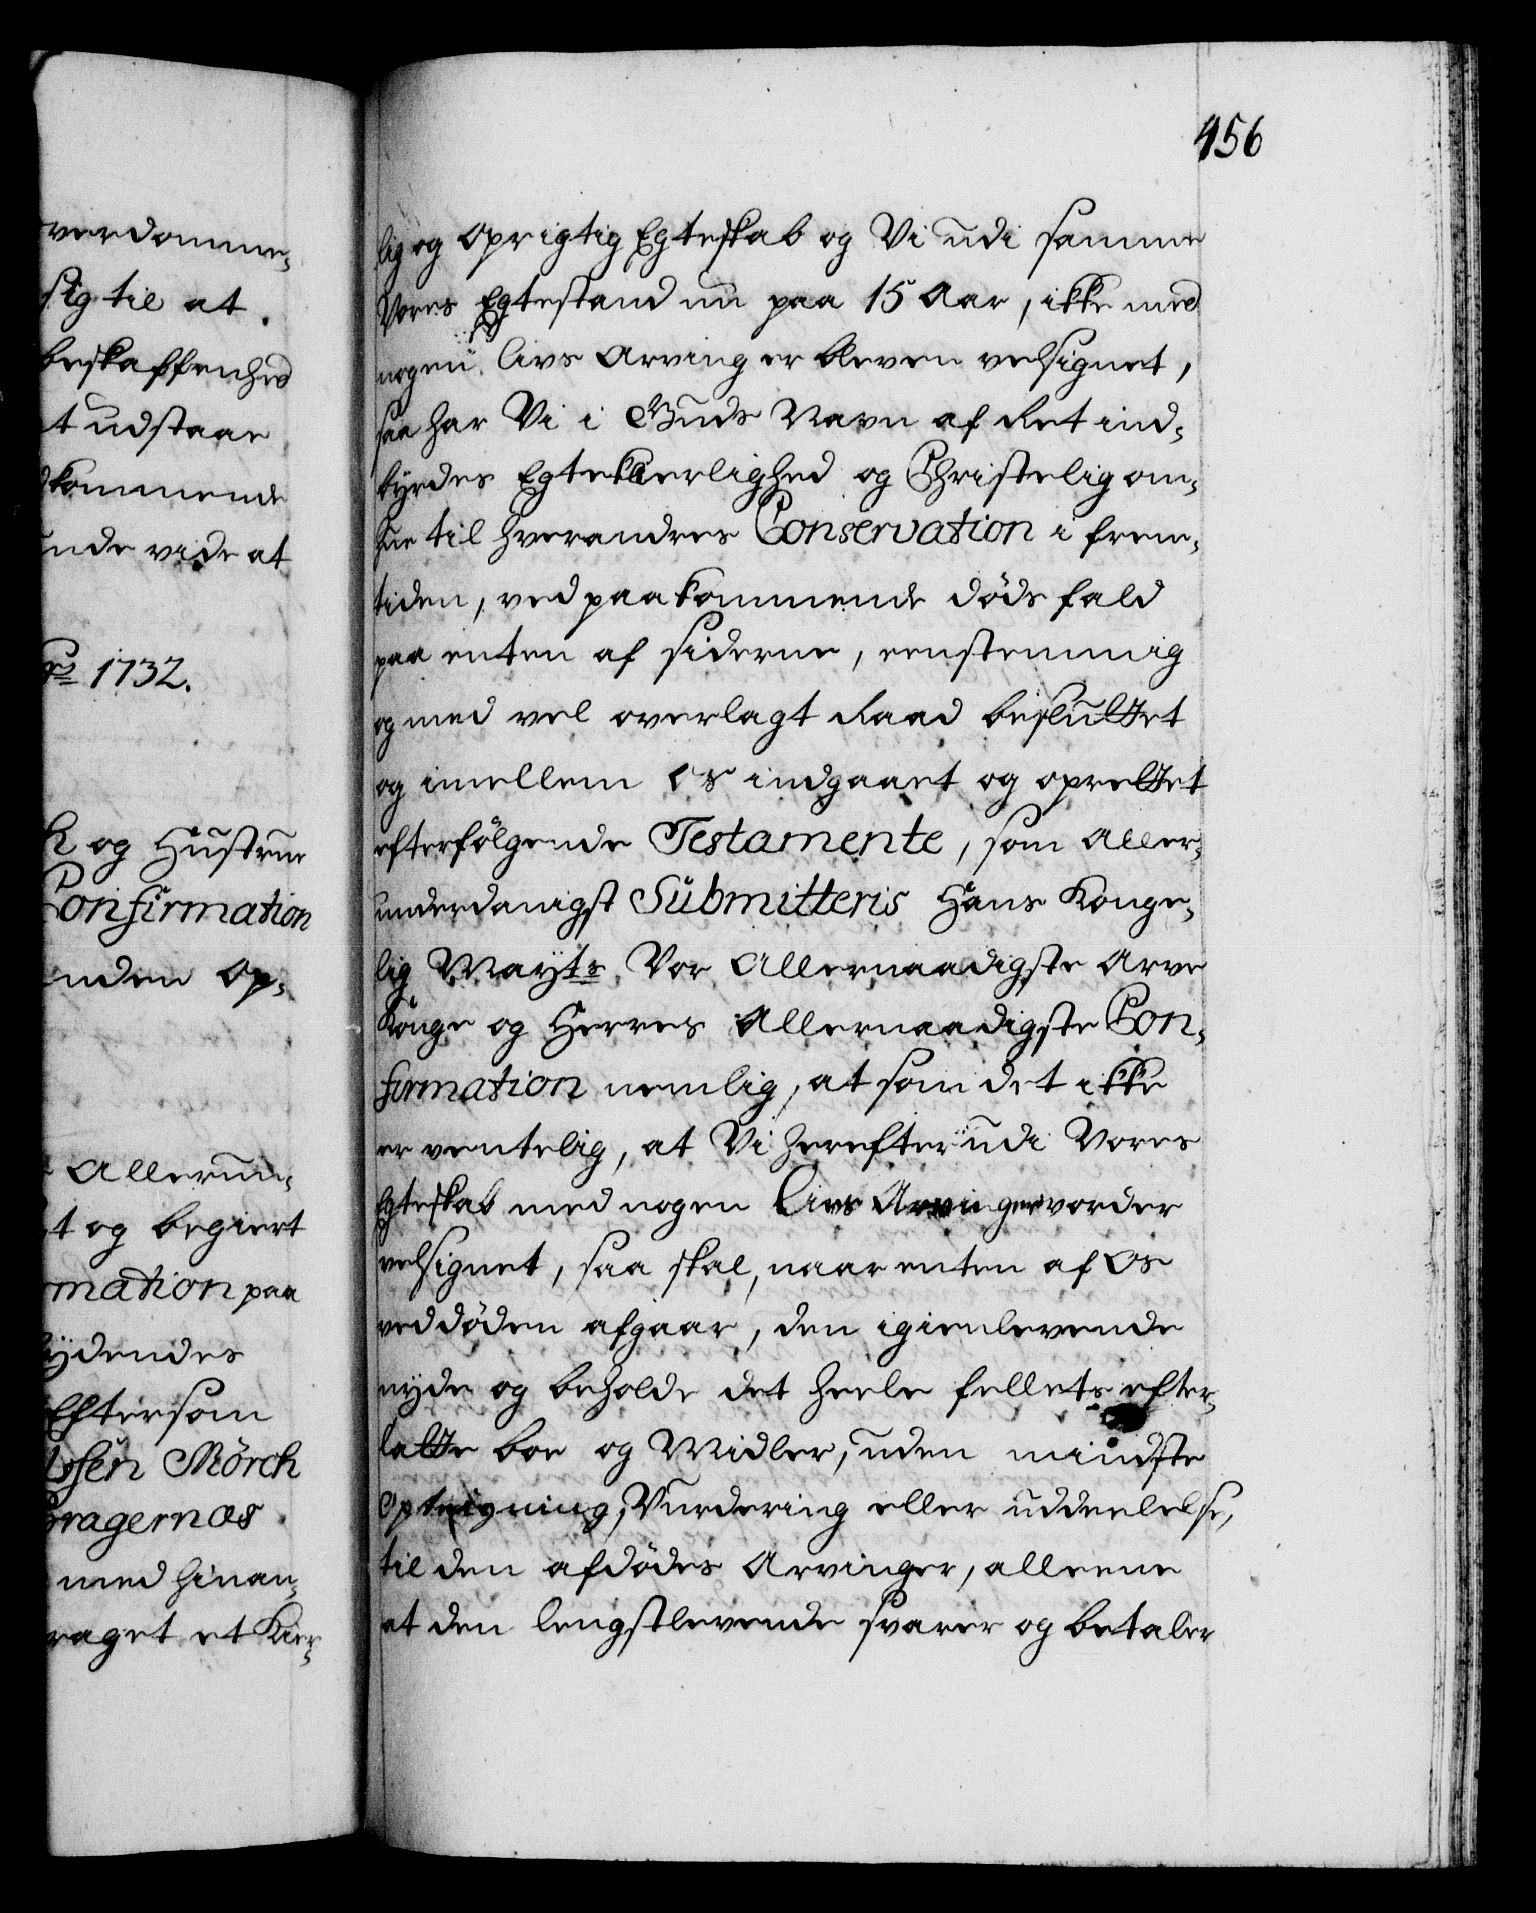 verdomme-
sig til at
beskaffenhed
t udstaae
dkommende
unde vide at
1732.
og Hustrue
Confirmation
nden Op-
Allerun-
t og begiert
mation paa
lydendes
Eftersom
sen Mörch
Bragernæs
med hinan-
raget et Kier-
456
lig og Oprigtig Egteskab og Vi udi samme
Vores Egtestand nu paa 15 Aar, ikke med
nogen Livs Arvinger bleven velsignet,
saa har Vi i Guds Navn af Ret ind-
byrdes Egtekierlighed og Christelig om-
hue til hverandres Conservation i frem-
tiden, ved paakommende dödsfald
paa enten af siderne, eenstemmig
og med vel overlagt Raad besluttet
og imellem os indgaaet og oprettet
efterfölgende Testamente, som Aller-
underdanigst Submitteris Hans Konge-
lig Mayts Vor Allernaadigste Arve
Konge og Herres Allernaadigste Con-
firmation nemlig, at som det ikke
er ventelig, at Vi herefter udi Vores
Egteskab med nogen Livs Arvinger vorder
velsignet, saa skal, naar enten af Os
ved döden afgaar, den igienlevende
nyde og beholde det heele fellets efter-
latte boe og Midler, uden mindste
Opteigning, Vurdering eller uddeelelse,
til den afdödes Arvinger, alleene
at den lengstlevende svarer og betaler